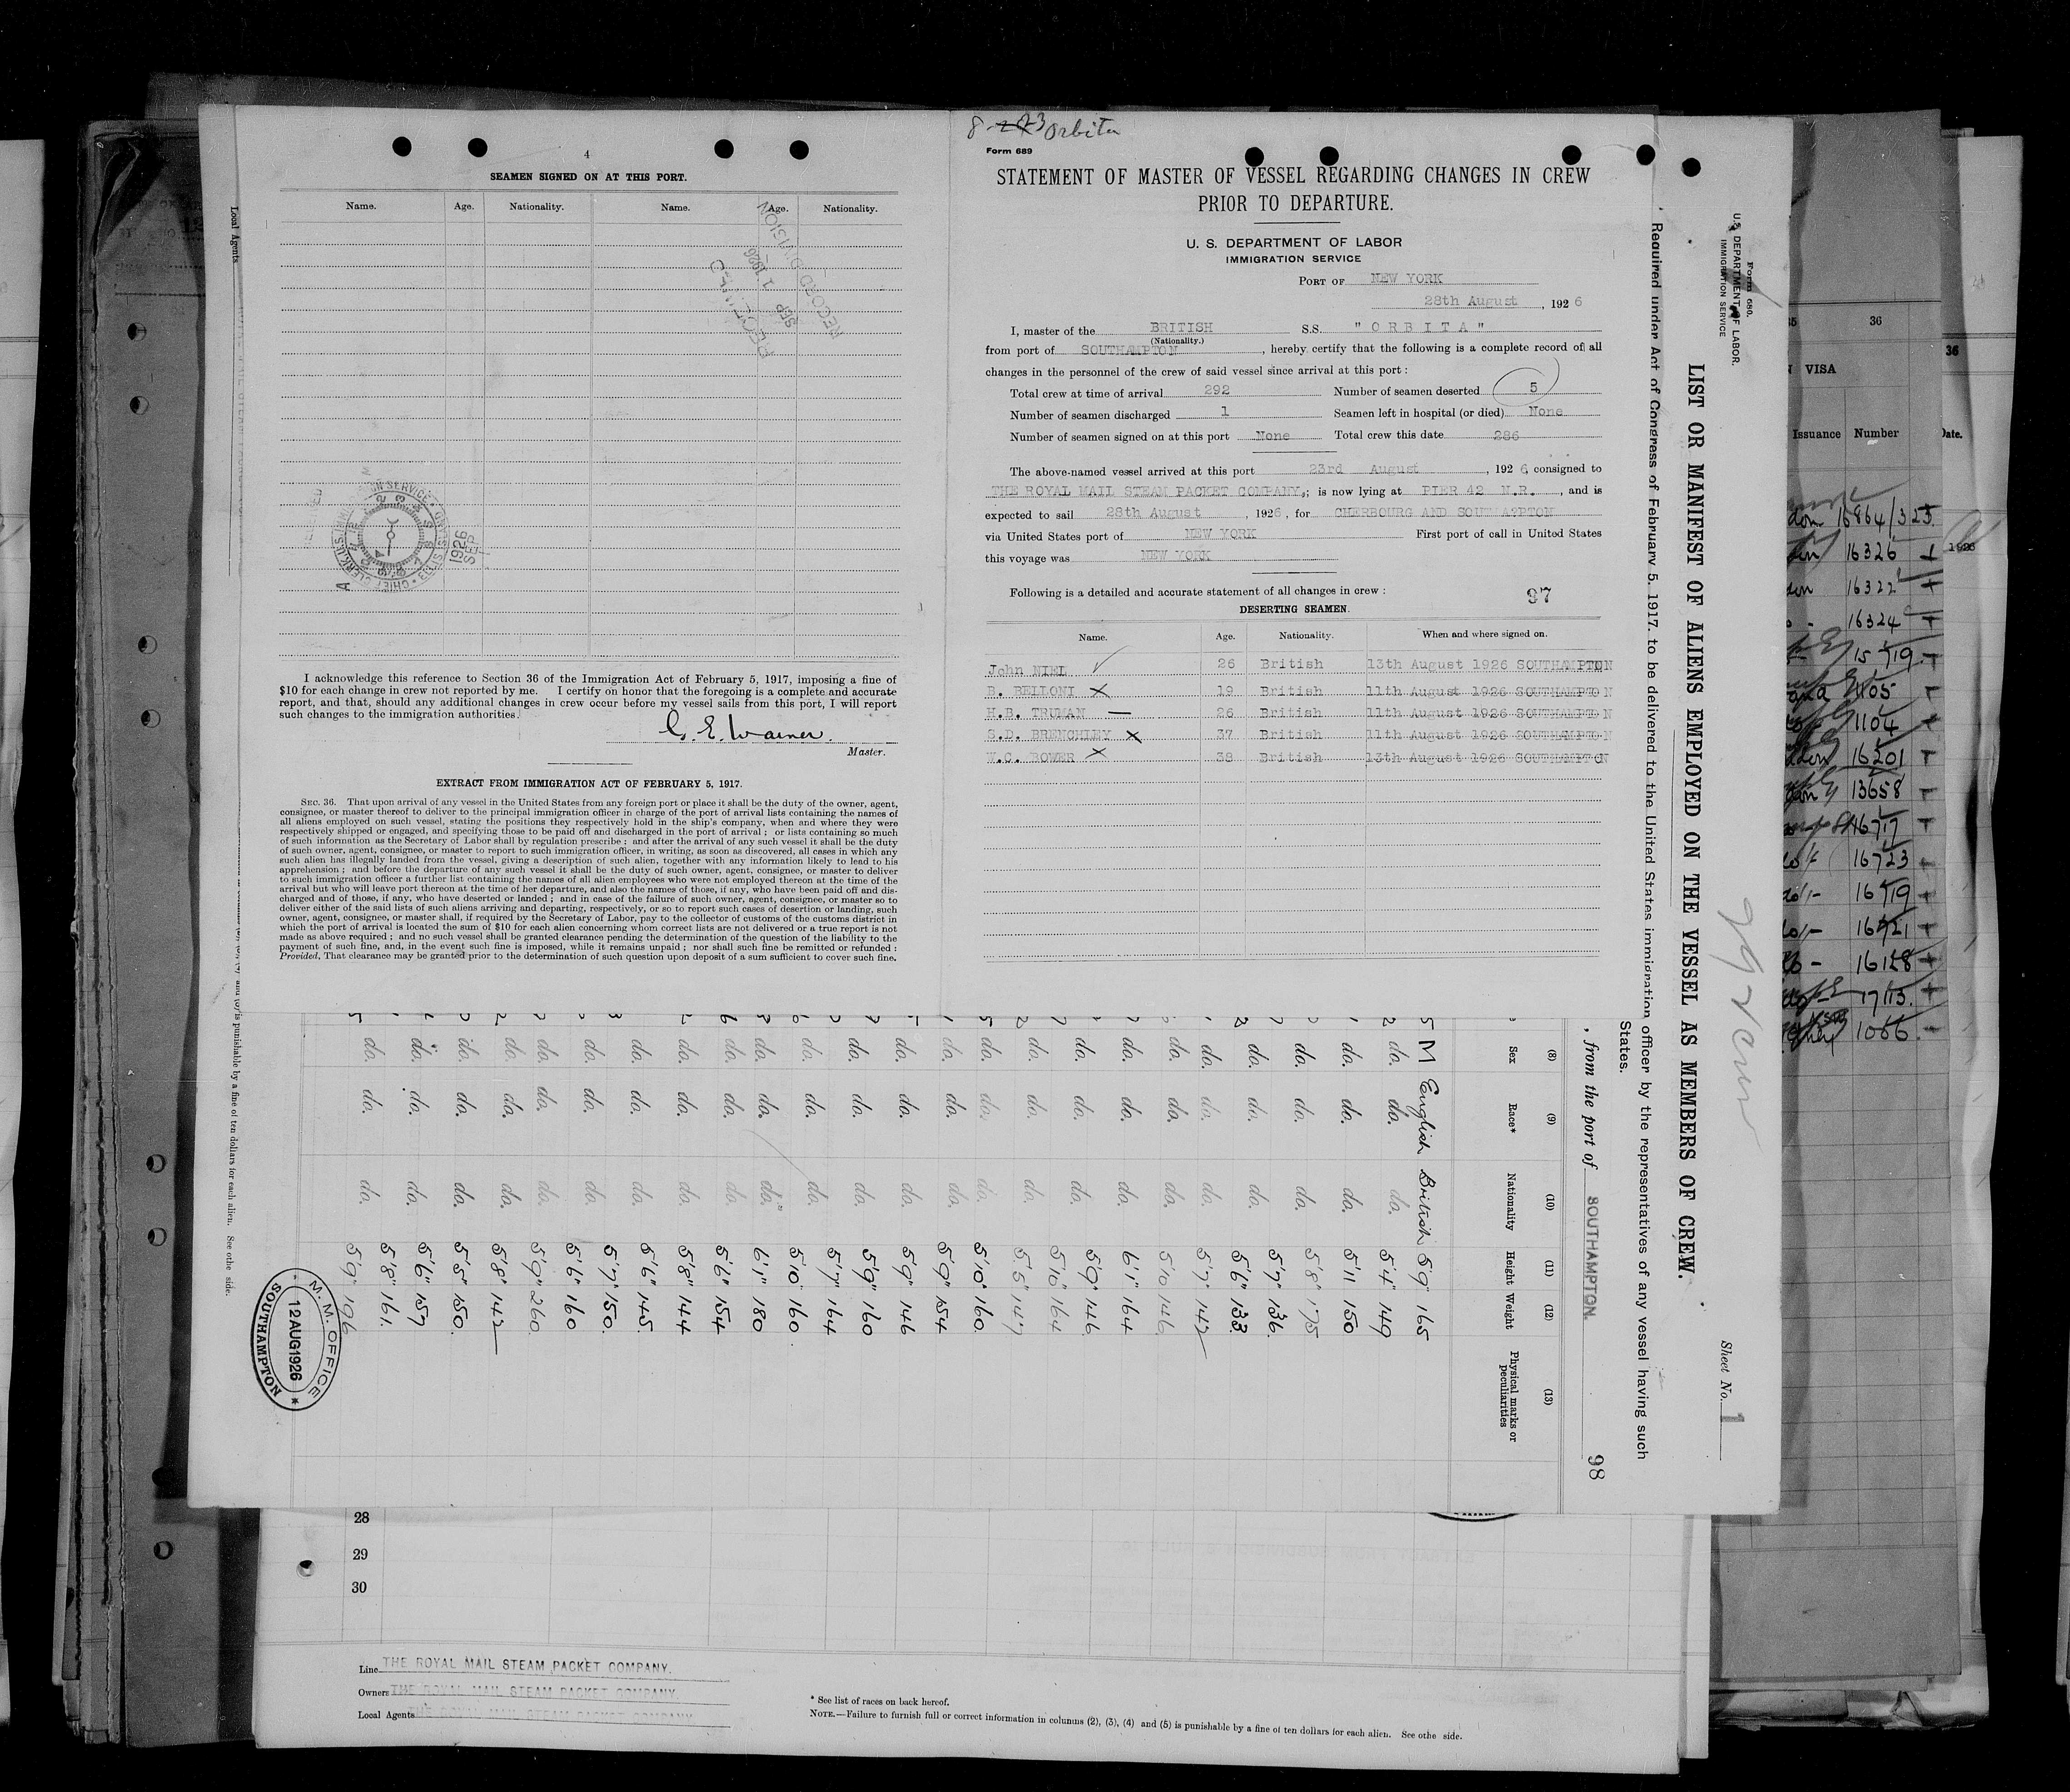 4
SEAMEN SIGNED ON AT THIS PORT.
Name. Age. Nationality. Name. Age. Nationality.
RECORD DIVISION
SEP 1 1926
I acknowledge this reference to Section 36 of the Immigration Act of February 5, 1917, imposing a fine of
$10 for each change in crew not reported by me. I certify on honor that the foregoing is a complete and accurate
report, and that, should any additional changes in crew occur before my vessel sails from this port, I will report
such changes to the immigration authorities.
C. E. Warner.
Master.
EXTRACT FROM IMMIGRATION ACT OF FEBRUARY 5, 1917.
SEC. 36. That upon arrival of any vessel in the United States from any foreign port or place it shall be the duty of the owner, agent,
consignee, or master thereof to deliver to the principal immigration officer in charge of the port of arrival lists containing the names of
all aliens employed on such vessel, stating the positions they respectively hold in the ship's company, when and where they were
respectively shipped or engaged, and specifying those to be paid off and discharged in the port of arrival ; or lists containing so much
of such information as the Secretary of Labor shall by regulation prescribe ; and after the arrival of any such vessel it shall be the duty
of such owner, agent, consignee, or master to report to such immigration officer, in writing, as soon as discovered, all cases in which any
such alien has illegally landed from the vessel, giving a description of such alien, together with any information likely to lead to his
apprehension ; and before the departure of any such vessel it shall be the duty of such owner, agent, consignee, or master to deliver
to such immigration officer a further list containing the names of all alien employees who were not employed thereon at the time of the
arrival but who will leave port thereon at the time of her departure, and also the names of those, if any, who have been paid off and dis-
charged and of those, if any, who have deserted or landed ; and in case of the failure of such owner, agent, consignee, or master so to
deliver either of the said lists of such aliens arriving and departing, respectively, or so to report such cases of desertion or landing, such
owner, agent, consignee, or master shall, if required by the Secretary of Labor, pay to the collector of customs of the customs district in
which the port of arrival is located the sum of $10 for each alien concerning whom correct lists are not delivered or a true report is not
made as above required ; and no such vessel shall be granted clearance pending the determination of the question of the liability to the
payment of such fine, and, in the event such fine is imposed, while it remains unpaid ; nor shall such fine be remitted or refunded :
Provided, That clearance may be granted prior to the determination of such question upon deposit of a sum sufficient to cover such fine.
Orbita
Form 689
STATEMENT OF MASTER OF VESSEL REGARDING CHANGES IN CREW
PRIOR TO DEPARTURE.
U. S. DEPARTMENT OF LABOR
IMMIGRATION SERVICE
PORT OF NEW YORK
28th August , 1926
I, master of the BRITISH S.S. "ORBITA"
(Nationality.)
from port of SOUTHAMPTON , hereby certify that the following is a complete record of all
changes in the personnel of the crew of said vessel since arrival at this port :
Total crew at time of arrival 292 Number of seamen deserted 5
Number of seamen discharged 1 Seamen left in hospital (or died) None
Number of seamen signed on at this port None Total crew this date 286
The above-named vessel arrived at this port 23rd August , 1926, consigned to
THE ROYAL MAIL STEAM PACKET COMPANY,; is now lying at PIER 42 N.R. , and is
expected to sail 28th August , 1926, for CHERBOURG AND SOUTHAMPTON
via United States port of NEW YORK First port of call in United States
this voyage was NEW YORK
Following is a detailed and accurate statement of all changes in crew : 97
DESERTING SEAMEN.
Name. Age. Nationality. When and where signed on.
John NIEL 26 British 13th August 1926 SOUTHAMPTON
B. BELLONI X 19 British 11th August 1926 SOUTHAMPTON
H.B. TRUMAN — 26 British 11th August 1926 SOUTHAMPTON
S.D. BRENCHLEY X 37 British 11th August 1926 SOUTHAMPTON
W.C. BOWER X 38 British 13th August 1926 SOUTHAMPTON
Form 680.
U.S. DEPARTMENT OF LABOR.
IMMIGRATION SERVICE
Sheet No. 1
LIST OR MANIFEST OF ALIENS EMPLOYED ON THE VESSEL AS MEMBERS OF CREW.
Required under Act of Congress of February 5, 1917, to be delivered to the United States immigration officer by the representatives of any vessel having such
States.
, from the port of SOUTHAMPTON. 98
(8) (9) (10) (11) (12) (13)
Sex Race* Nationality Height Weight Physical marks or peculiarities
M English British 5'9" 165
do. do. do. 5'4" 149
do. do. do. 5'11 150
do. do. do. 5'8" 175
do. do. do. 5'7" 136.
do. do. do. 5'6" 133.
do. do. do. 5'7" 142
do. do. do. 5'10 146
do. do. do. 6'1" 164
do. do. do. 5'9" 146
do. do. do. 5'10" 164
do. do. do. 5'5" 147
do. do. do. 5'10" 160.
do. do. do. 5'9" 154
do. do. do. 5'9" 146
do. do. do. 5'9" 160
do. do. do. 5'7" 164
do. do. do. 5'10" 160
do. do. do. 6'1" 180
do. do. do. 5'6" 154
do. do. do. 5'8" 144
do. do. do. 5'6" 145.
do. do. do. 5'7" 150.
do. do. do. 5'6" 160
do. do. do. 5'9" 260.
do. do. do. 5'8" 142
do. do. do. 5'5" 150.
do. do. do. 5'6" 157
do. do. do. 5'8" 161.
5'9" 196
M. M. OFFICE
12 AUG 1926
SOUTHAMPTON
Local Agents
is punishable by a fine of ten dollars for each alien. See othe side.
36
VISA
Issuance Number
16864/325
16326
16322
16324
15719
1105
1104
16201
13658
16717
16723
16719
16721
16128
17113.
1066
36
Date.
1926
28
29
30
Line THE ROYAL MAIL STEAM PACKET COMPANY.
Owners THE ROYAL MAIL STEAM PACKET COMPANY.
Local Agents THE ROYAL MAIL STEAM PACKET COMPANY
* See list of races on back hereof.
NOTE.—Failure to furnish full or correct information in columns (2), (3), (4) and (5) is punishable by a fine of ten dollars for each alien. See othe side.